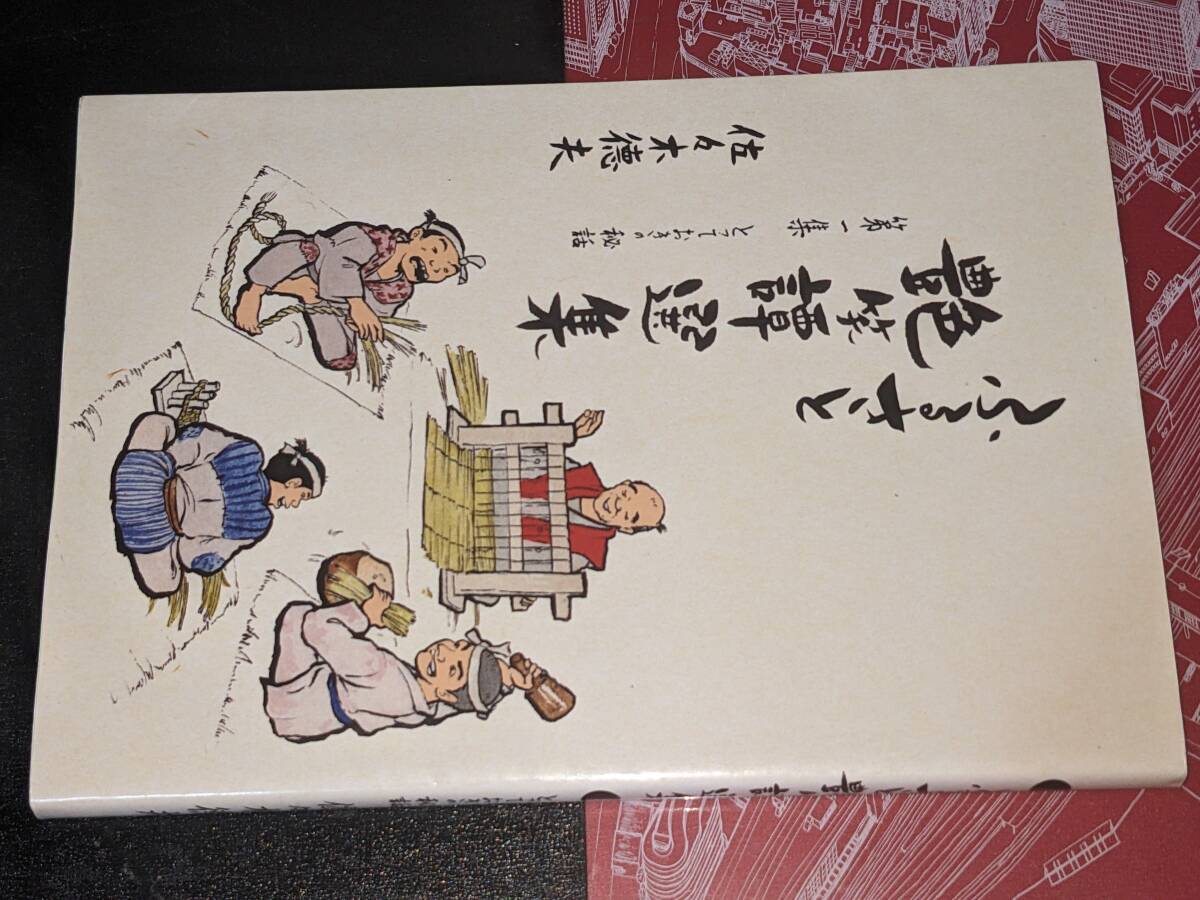 ふるさと
艶笑譚選集
第一集 とっておきの秘話
佐々木徳夫